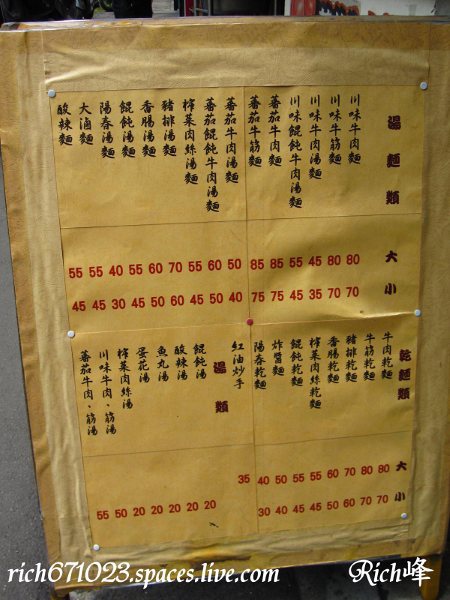 湯麵類
川味牛肉麵
川味牛筋麵
川味牛肉湯麵
川味餛飩牛肉湯麵
蕃茄牛肉麵
蕃茄牛筋麵
蕃茄牛肉湯麵
蕃茄餛飩牛肉湯麵
榨菜肉絲湯麵
豬排湯麵
香腸湯麵
餛飩湯麵
陽春湯麵
大滷麵
酸辣麵
55 55 40 55 60 70 55 60 50 85 85 55 45 80 80 大
45 45 30 45 50 60 45 50 40 75 75 45 35 70 70 小
乾麵類
牛肉乾麵
牛筋乾麵
豬排乾麵
香腸乾麵
榨菜肉絲乾麵
餛飩乾麵
炸醬麵
陽春乾麵
紅油炒手
湯類
餛飩湯
酸辣湯
魚丸湯
蛋花湯
榨菜肉絲湯
川味牛肉、筋湯
蕃茄牛肉、筋湯
35 40 50 55 55 60 70 80 80 大
55 50 20 20 20 20 20 30 40 45 45 50 60 70 70 小
rich671023.spaces.live.com
Rich峰